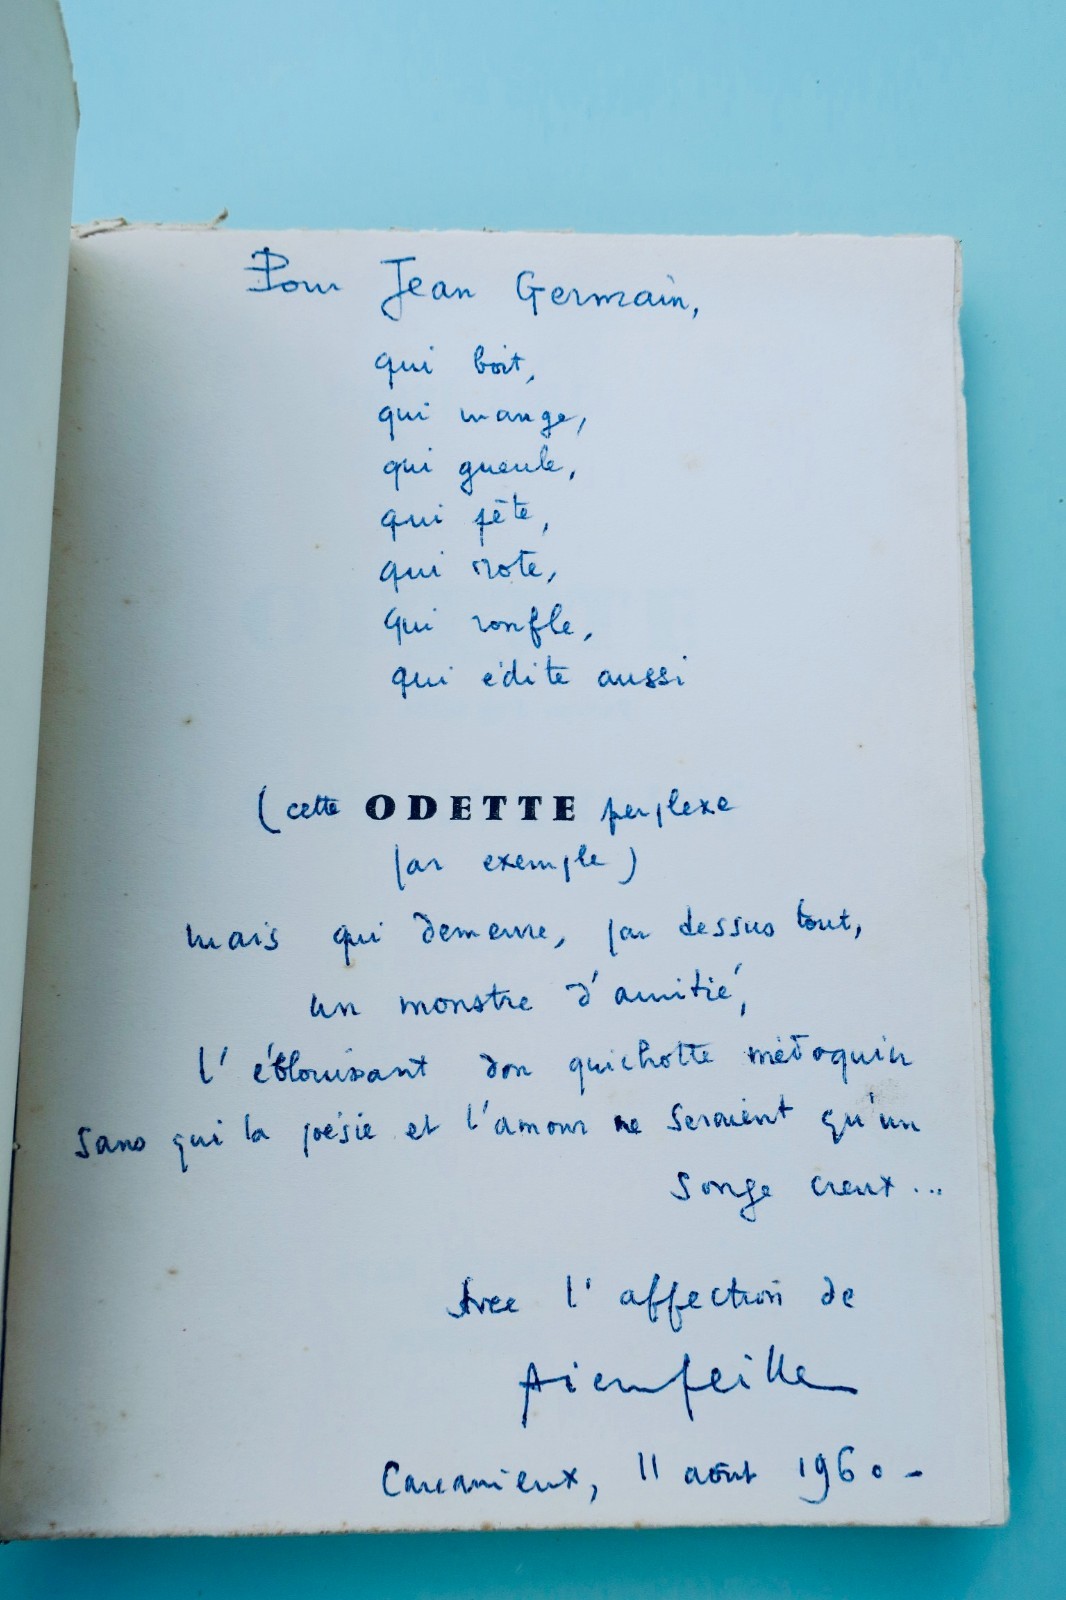 Pour Jean Germain,
qui boit,
qui mange,
qui gueule,
qui pète,
qui rote,
qui ronfle,
qui édite aussi
(cette ODETTE perplexe
par exemple)
mais qui demeure, par dessus tout,
un monstre d'amitié,
l'éblouissant don quichotte médoquin
sans qui la poésie et l'amour ne seraient qu'un
songe creux...
Avec l'affection de
Carcanieux, 11 août 1960-